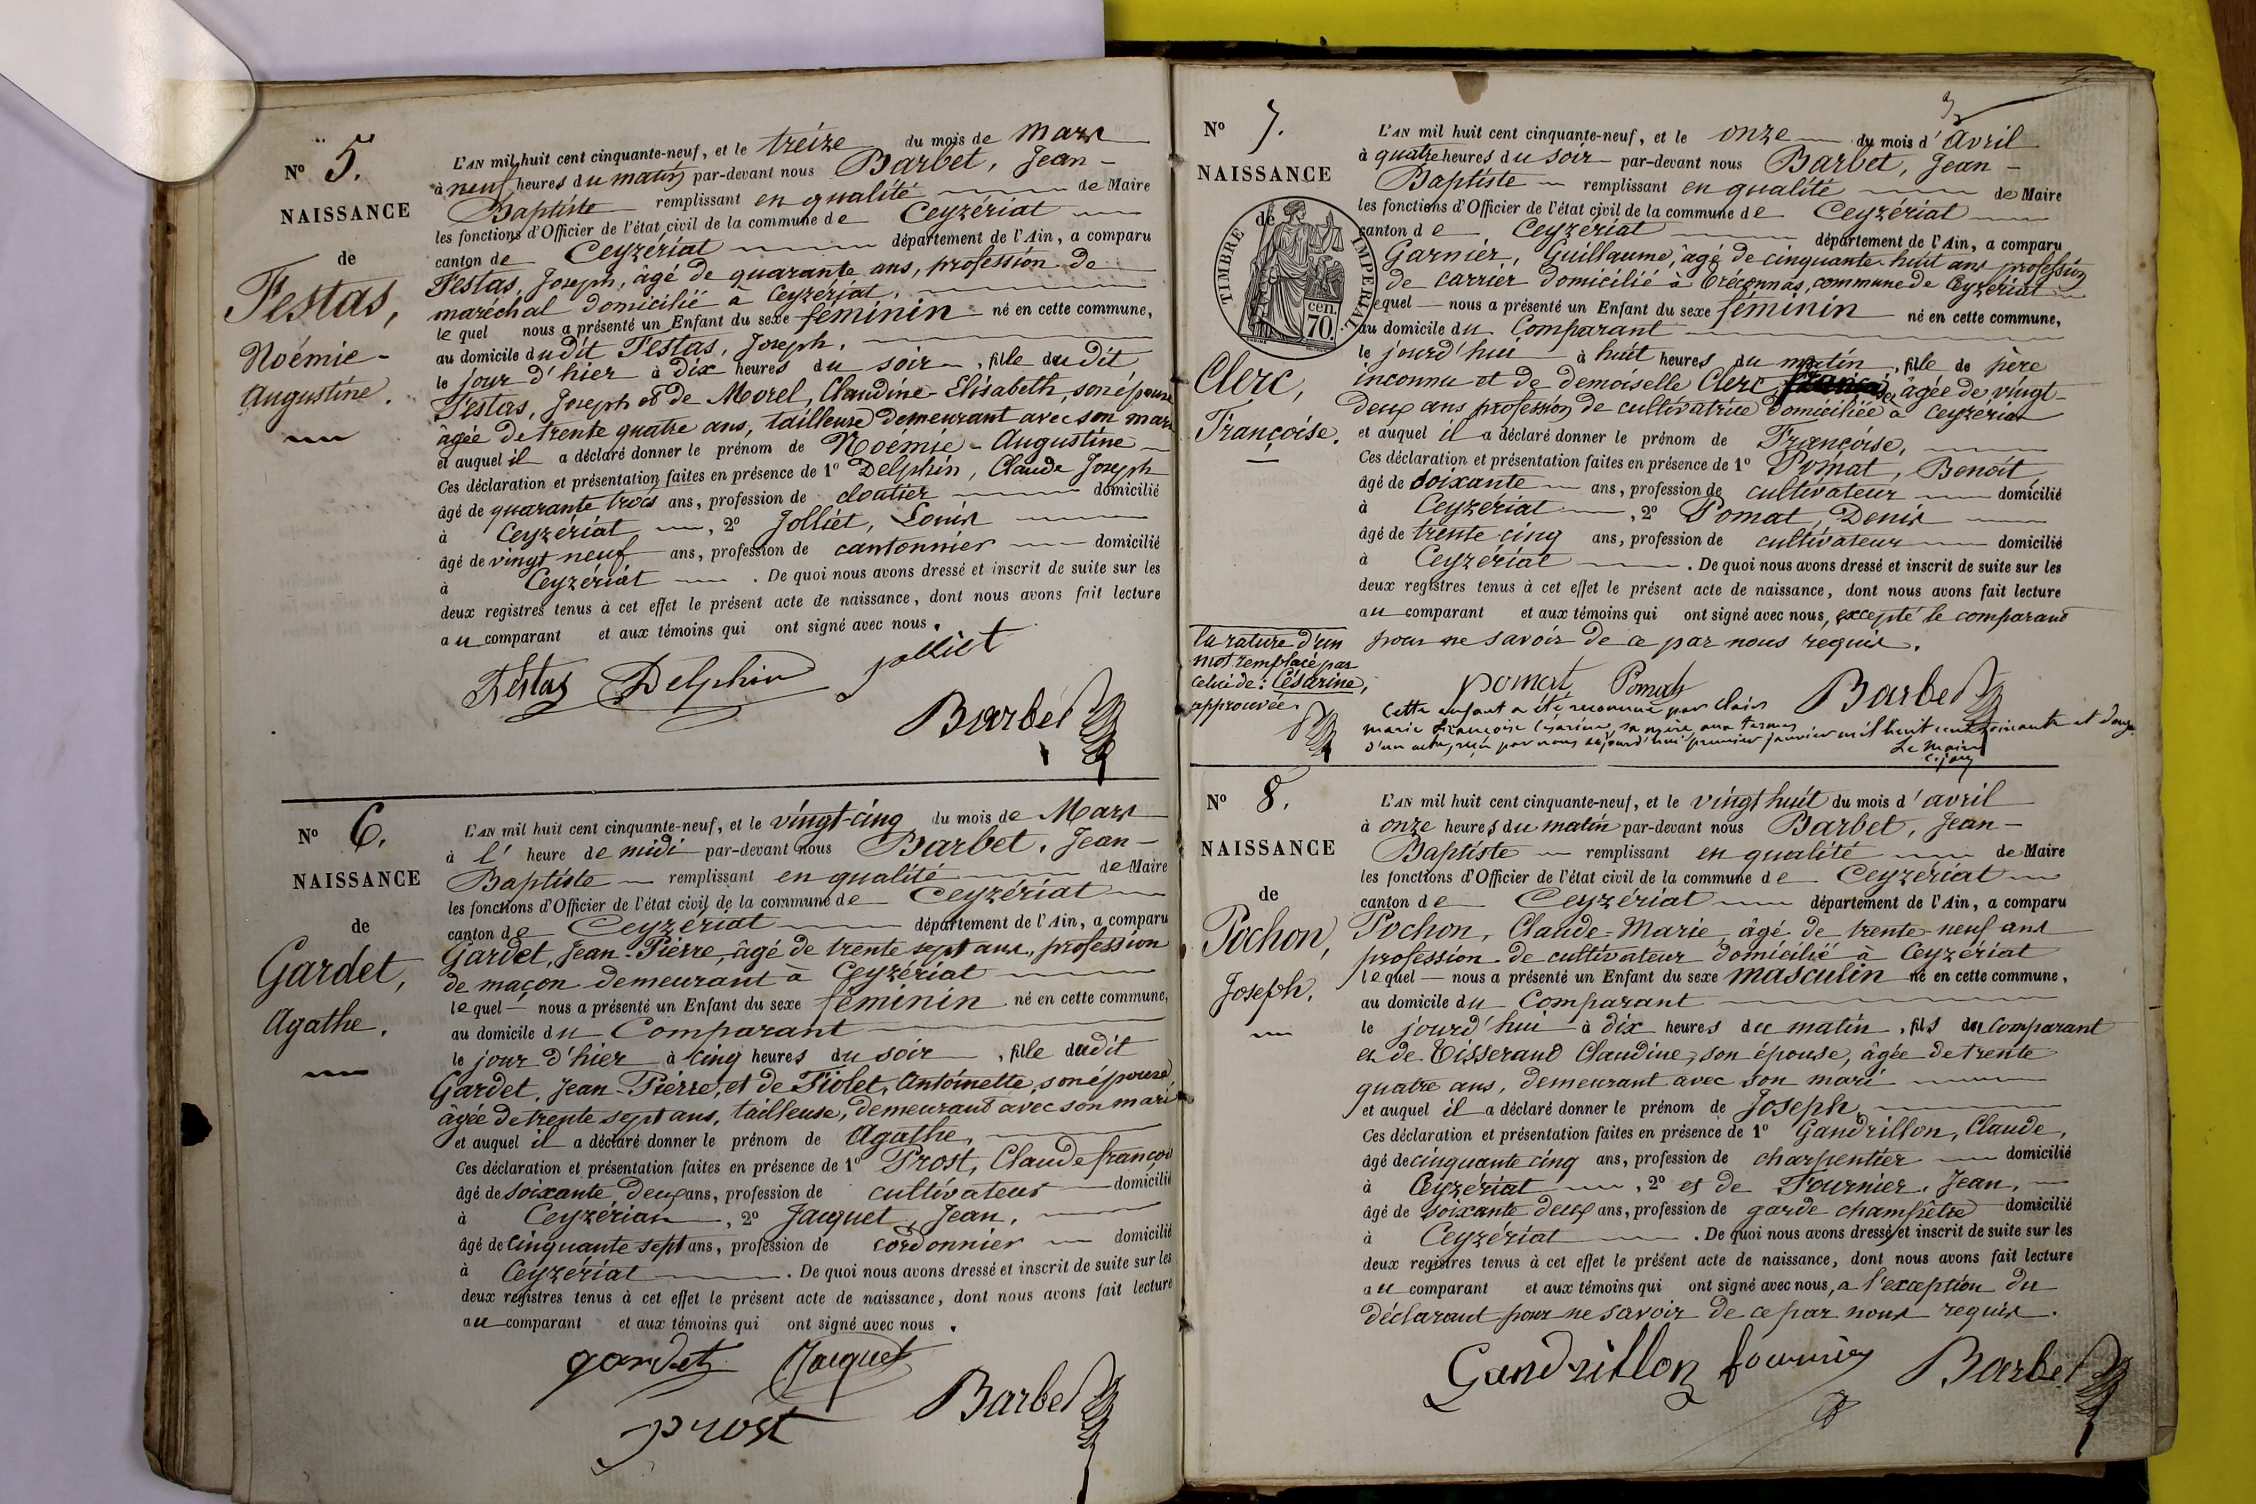 N° 5.
NAISSANCE
de
Festas,
Noémie-
Augustine.
L'AN mil huit cent cinquante-neuf, et le treize du mois de Mars
à neuf heures du matin par-devant nous Barbet, Jean-
Baptiste remplissant en qualité de Maire
les fonctions d'Officier de l'état civil de la commune de Ceyzériat
canton de Ceyzériat département de l'Ain, a comparu
Festas, Joseph, âgé de quarante ans, profession de
maréchal domicilié à Ceyzériat,
le quel nous a présenté un Enfant du sexe féminin né en cette commune,
au domicile dudit Festas, Joseph,
le jour d'hier à dix heures du soir, fille du dit
Festas, Joseph et de Morel, Claudine-Elisabeth, son épouse
âgée de trente quatre ans, tailleuse demeurant avec son mari
et auquel il a déclaré donner le prénom de Noémie-Augustine
Ces déclaration et présentation faites en présence de 1° Delphin, Claude Joseph
âgé de quarante trois ans, profession de cloutier domicilié
à Ceyzériat, 2° Jolliet, Louis
âgé de vingt neuf ans, profession de cantonnier domicilié
à Ceyzériat. De quoi nous avons dressé et inscrit de suite sur les
deux registres tenus à cet effet le présent acte de naissance, dont nous avons fait lecture
au comparant et aux témoins qui ont signé avec nous.
Festas Delphin Jolliet
Barbet
N° 6.
NAISSANCE
de
Gardet,
Agathe.
L'AN mil huit cent cinquante-neuf, et le vingt-cinq du mois de Mars
à l' heure de midi par-devant nous Barbet, Jean-
Baptiste remplissant en qualité de Maire
les fonctions d'Officier de l'état civil de la commune de Ceyzériat
canton de Ceyzériat département de l'Ain, a comparu
Gardet, Jean-Pierre, âgé de trente sept ans, profession
de maçon demeurant à Ceyzériat
le quel nous a présenté un Enfant du sexe féminin né en cette commune,
au domicile du Comparant
le jour d'hier à cinq heures du soir, fille dudit
Gardet, Jean-Pierre, et de Piolet, Antoinette, son épouse
âgée de trente sept ans, tailleuse, demeurant avec son mari
et auquel il a déclaré donner le prénom de Agathe,
Ces déclaration et présentation faites en présence de 1° Prost, Claude françois
âgé de soixante deux ans, profession de cultivateur domicilié
à Ceyzériat, 2° Jacquet, Jean,
âgé de cinquante sept ans, profession de cordonnier domicilié
à Ceyzériat. De quoi nous avons dressé et inscrit de suite sur les
deux registres tenus à cet effet le présent acte de naissance, dont nous avons fait lecture
au comparant et aux témoins qui ont signé avec nous.
gardet Jacquet
Barbet
prost
3
N° 7.
NAISSANCE
de
TIMBRE IMPERIAL
70 cen.
Clerc,
Françoise.
L'AN mil huit cent cinquante-neuf, et le onze du mois d'avril
à quatre heures du soir par-devant nous Barbet, Jean-
Baptiste remplissant en qualité de Maire
les fonctions d'Officier de l'état civil de la commune de Ceyzériat
canton de Ceyzériat département de l'Ain, a comparu
Garnier, Guillaume, âgé de cinquante-huit ans profession
de carrier domicilié à Tréconnas, commune de Ceyzériat
lequel nous a présenté un Enfant du sexe féminin né en cette commune,
au domicile du Comparant
le jourd'hui à huit heures du matin, fille de père
inconnu et de demoiselle Clerc, âgée de vingt-
deux ans profession de cultivatrice domiciliée à Ceyzériat
et auquel il a déclaré donner le prénom de Françoise,
Ces déclaration et présentation faites en présence de 1° Pomat, Benoît,
âgé de soixante ans, profession de cultivateur domicilié
à Ceyzériat, 2° Pomat, Denis
âgé de trente cinq ans, profession de cultivateur domicilié
à Ceyzériat. De quoi nous avons dressé et inscrit de suite sur les
deux registres tenus à cet effet le présent acte de naissance, dont nous avons fait lecture
au comparant et aux témoins qui ont signé avec nous, excepté le comparant
pour ne savoir de ce par nous requis.
la rature d'un
mot remplacé par
celui de: Césarine,
approuvée.
pomat Pomat Barbet
Cette enfant a été reconnue par Clerc
marie Françoise Césarine, sa mère aux termes
d'un acte, reçu par nous aujourd'hui premier janvier mil huit cent soixante et douze
Le Maire
N° 8.
NAISSANCE
de
Pochon,
Joseph.
L'AN mil huit cent cinquante-neuf, et le vingt huit du mois d'avril
à onze heures du matin par-devant nous Barbet, Jean-
Baptiste remplissant en qualité de Maire
les fonctions d'Officier de l'état civil de la commune de Ceyzériat
canton de Ceyzériat département de l'Ain, a comparu
Pochon, Claude-Marie, âgé de trente-neuf ans
profession de cultivateur domicilié à Ceyzériat
lequel nous a présenté un Enfant du sexe masculin né en cette commune,
au domicile du Comparant
le jourd'hui à dix heures du matin, fils du comparant
et de Tisserand Claudine, son épouse, âgée de trente
quatre ans, demeurant avec son mari
et auquel il a déclaré donner le prénom de Joseph
Ces déclaration et présentation faites en présence de 1° Gandrillon, Claude,
âgé de cinquante cinq ans, profession de charpentier domicilié
à Ceyzériat, 2° et de Fournier, Jean,
âgé de soixante deux ans, profession de garde champêtre domicilié
à Ceyzériat. De quoi nous avons dressé et inscrit de suite sur les
deux registres tenus à cet effet le présent acte de naissance, dont nous avons fait lecture
au comparant et aux témoins qui ont signé avec nous, a l'exception du
déclarant pour ne savoir de ce par nous requis.
Gandrillon fournier Barbet